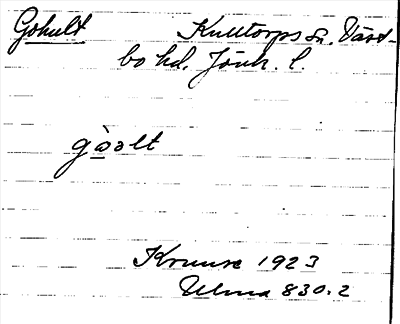 Gohult Kulltorps sn. Väst-
bo hd. Jönk. l.
gòolt
Krumse 1923
Ulma 830.2